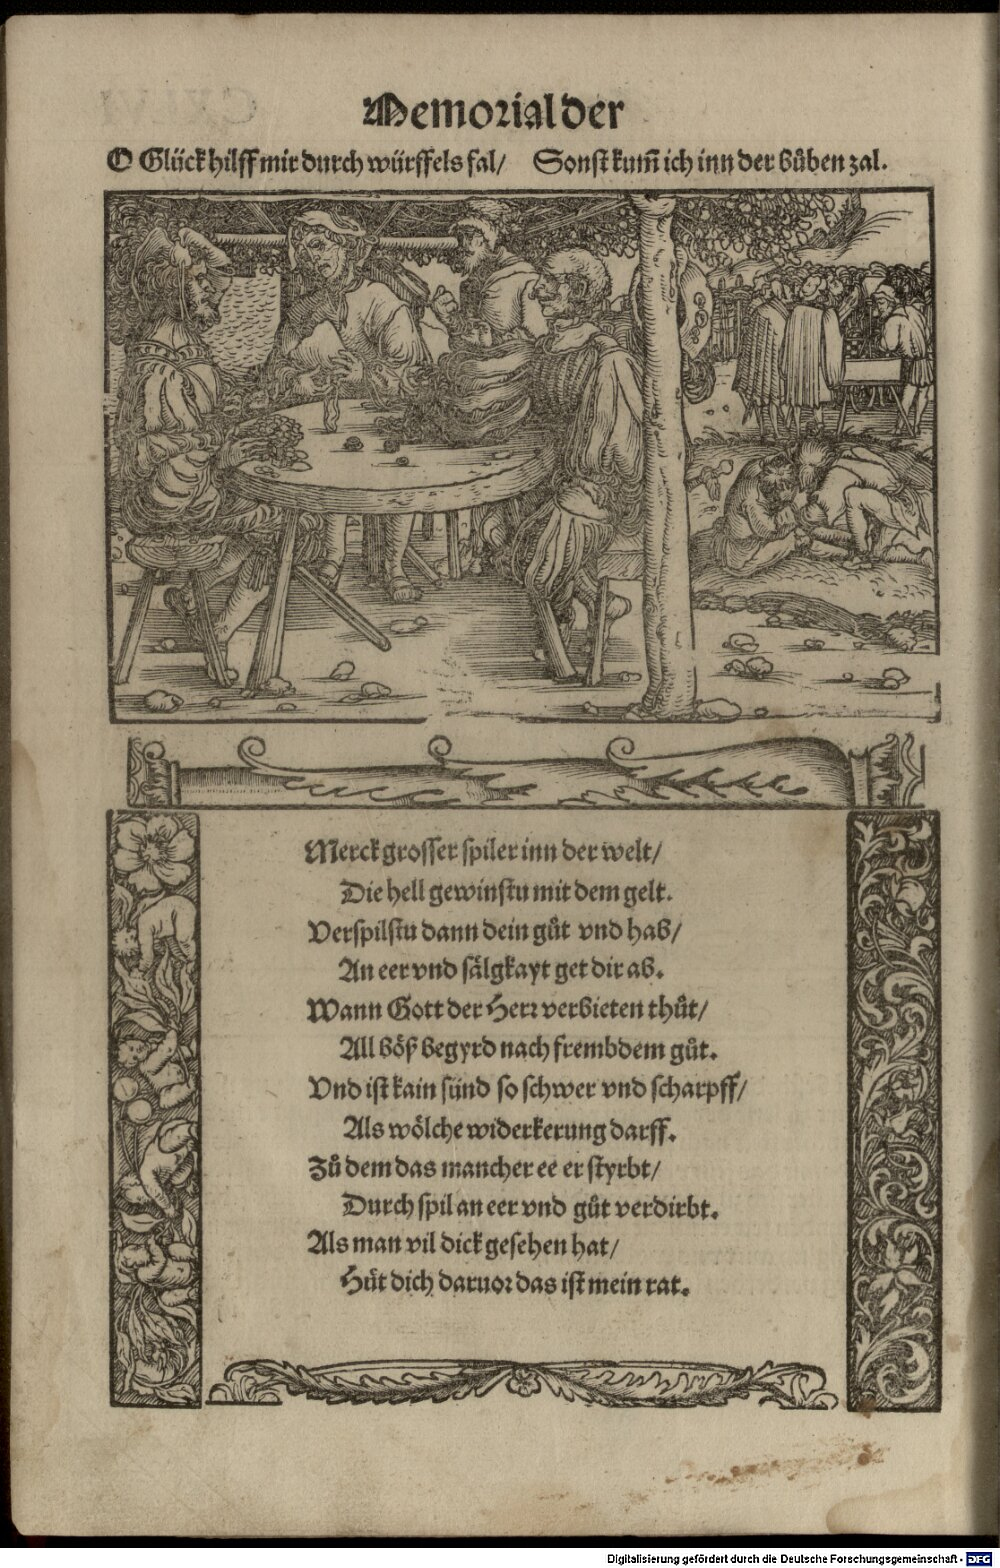 Memorial der
O Glück hilff mir durch würffels fal/ Sonst kum̃ ich inn der bůben zal.
Merck grosser spiler inn der welt/
Die hell gewinstu mit dem gelt.
Verspilstu dann dein gůt vnd hab/
An eer vnd sälgkayt get dir ab.
Wann Gott der Herr verbieten thůt/
All böß begyrd nach frembdem gůt.
Vnd ist kain sünd so schwer vnd scharpff/
Als wölche widerkerung darff.
Zů dem das mancher ee er styrbt/
Durch spil an eer vnd gůt verdirbt.
Als man vil dick gesehen hat/
Hüt dich daruor das ist mein rat.
Digitalisierung gefördert durch die Deutsche Forschungsgemeinschaft - DFG